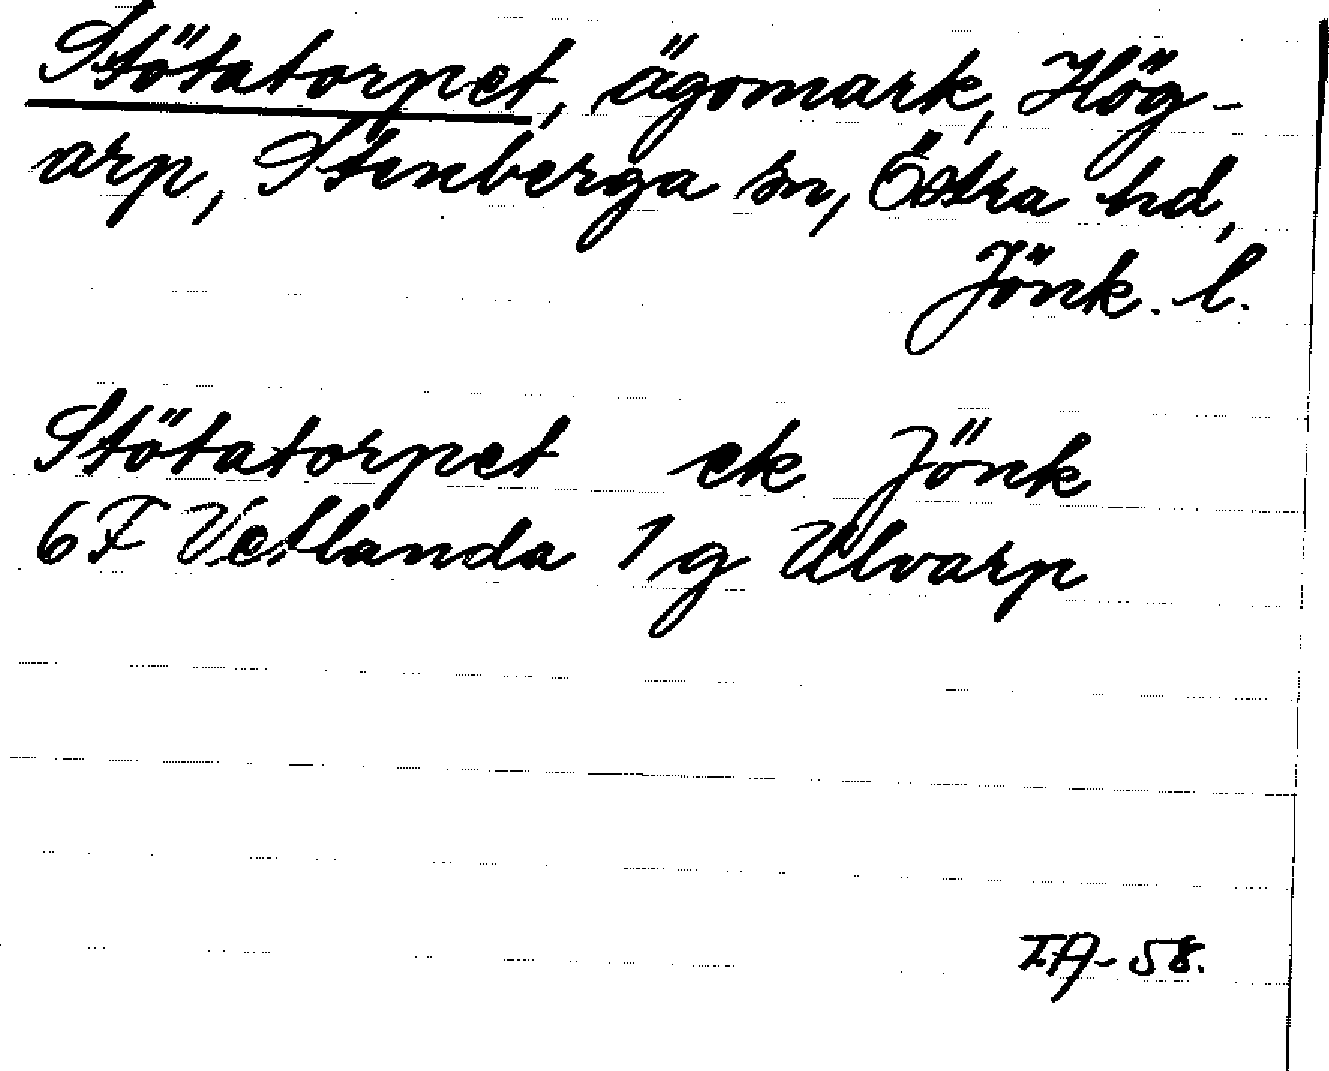 Stötatorpet, ägomark, Hög-
arp, Stenberga sn, Östra hd,
Jönk. l.
Stötatorpet ek Jönk
6F Vetlanda 1g Ulvarp
IA-58.